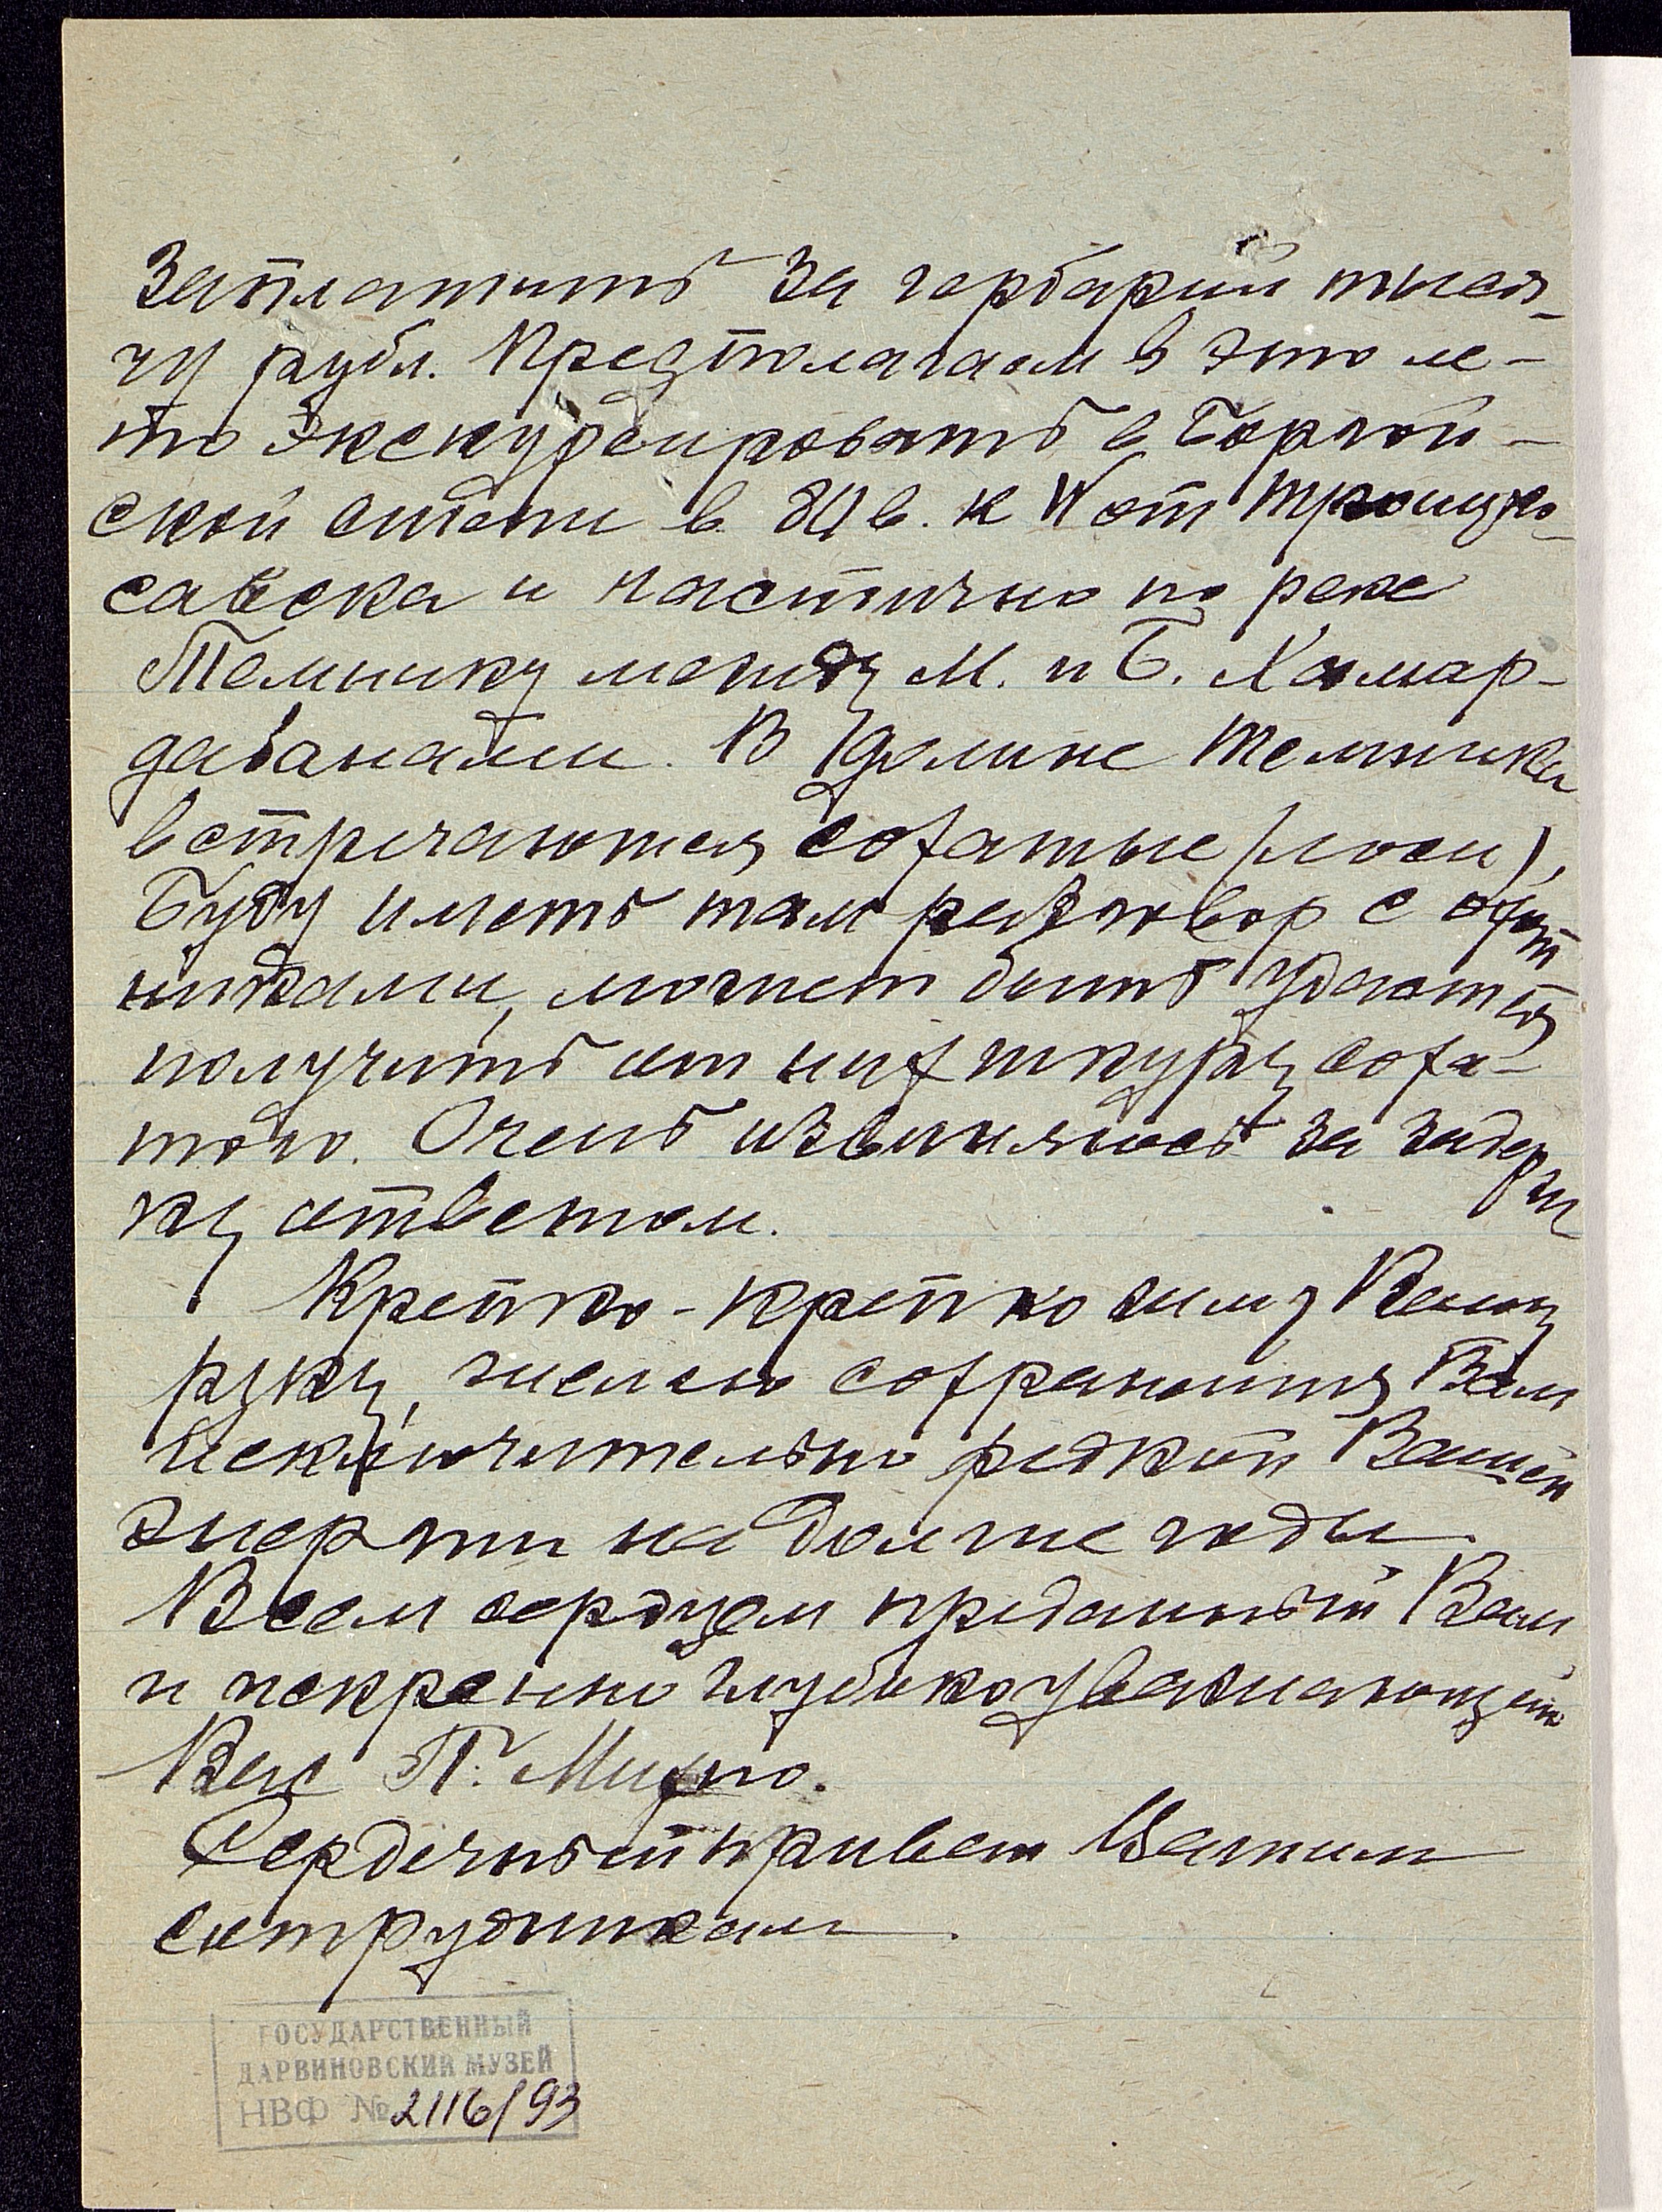 Заплатить за гербарий тыся-
чу рубл. Предполагаем в это ле-
то экскурсировать в Боргой-
ской степи в 80 в. к W от Троицко-
савска и частично по реке
Темнику между М. и Б. Хамар-
дабанами. В долине Темника
встречаются сохатые (лоси),
Буду иметь там разговор с охот
никами, может быть удастся
получить от них шкуру соха-
того. Очень извиняюсь за задерж
ку ответом.
Крепко-крепко жму Вашу
руку, желаю сохранить Вам
исключительно редкой Вашей
энергии на долгие годы.
Всем сердцем преданный Вам
и искренно глубокоуважающий
Вас П. Михно.
Сердечный привет Вашим
сотрудникам.
ГОСУДАРСТВЕННЫЙ
ДАРВИНОВСКИЙ МУЗЕЙ
НВФ № 2116/93